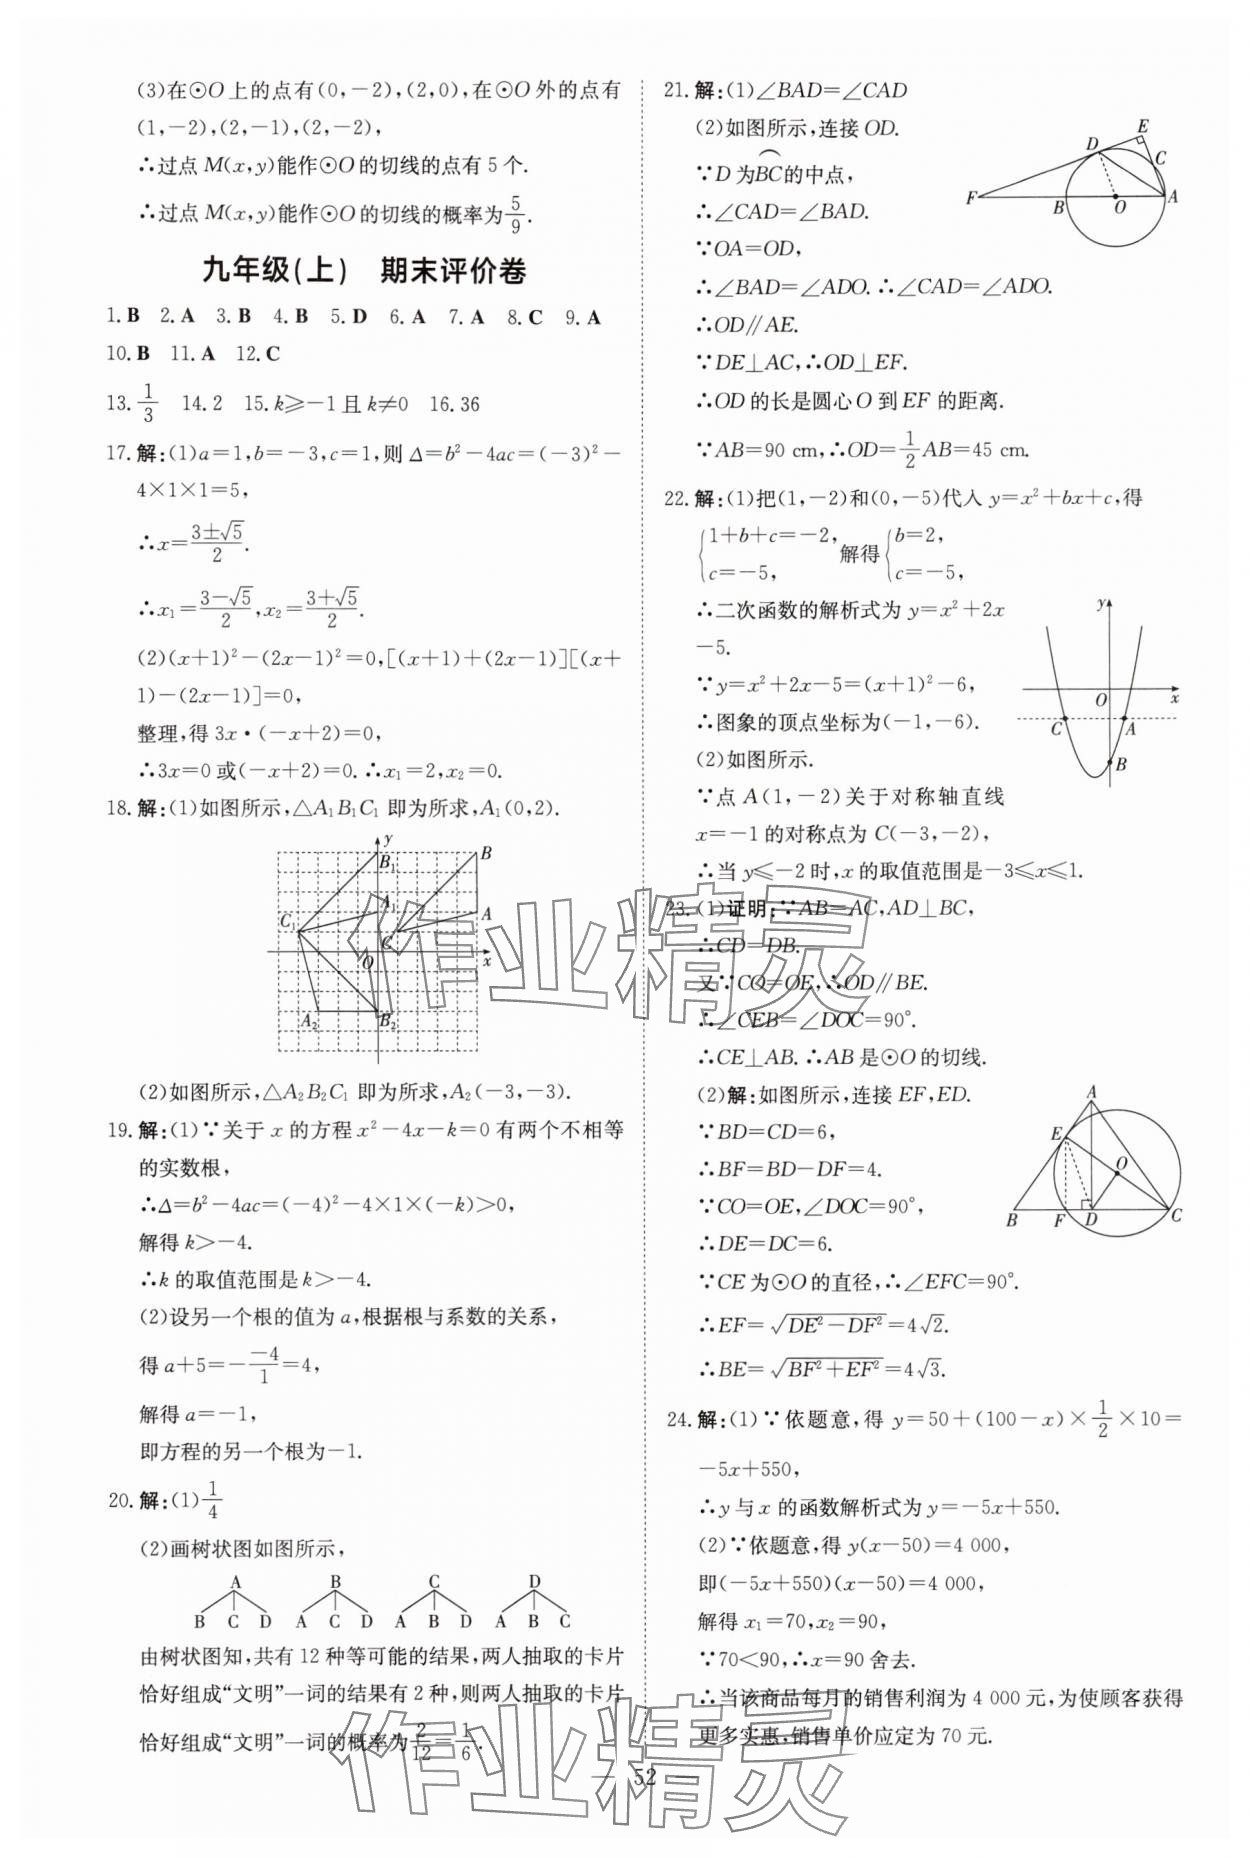 (3)在⊙O上的点有(0,-2),(2,0),在⊙O外的点有
(1,-2),(2,-1),(2,-2),
∴过点M(x,y)能作⊙O的切线的点有5个.
∴过点M(x,y)能作⊙O的切线的概率为5/9.
九年级(上) 期末评价卷
1.B 2.A 3.B 4.B 5.D 6.A 7.A 8.C 9.A
10.B 11.A 12.C
13.1/3 14.2 15.k≥-1且k≠0 16.36
17.解:(1)a=1,b=-3,c=1,则Δ=b²-4ac=(-3)²-
4×1×1=5,
∴x=(3±√5)/2.
∴x₁=(3-√5)/2,x₂=(3+√5)/2.
(2)(x+1)²-(2x-1)²=0,[(x+1)+(2x-1)][(x+
1)-(2x-1)]=0,
整理,得3x·(-x+2)=0,
∴3x=0或(-x+2)=0.∴x₁=2,x₂=0.
18.解:(1)如图所示,△A₁B₁C₁即为所求,A₁(0,2).
y
B₁ B
C₁ A₁ A
C
O x
A₂ B₂
(2)如图所示,△A₂B₂C₁即为所求,A₂(-3,-3).
19.解:(1)∵关于x的方程x²-4x-k=0有两个不相等
的实数根,
∴Δ=b²-4ac=(-4)²-4×1×(-k)>0,
解得k>-4.
∴k的取值范围是k>-4.
(2)设另一个根的值为a,根据根与系数的关系,
得a+5=-(-4)/1=4,
解得a=-1,
即方程的另一个根为-1.
20.解:(1)1/4
(2)画树状图如图所示,
A B C D
B C D A C D A B D A B C
由树状图知,共有12种等可能的结果,两人抽取的卡片
恰好组成“文明”一词的结果有2种,则两人抽取的卡片
恰好组成“文明”一词的概率为2/12=1/6.
21.解:(1)∠BAD=∠CAD
(2)如图所示,连接OD.
∵D为⌒BC的中点,
∴∠CAD=∠BAD.
∵OA=OD,
∴∠BAD=∠ADO.∴∠CAD=∠ADO.
∴OD∥AE.
∵DE⊥AC,∴OD⊥EF.
∴OD的长是圆心O到EF的距离.
∵AB=90 cm,∴OD=1/2AB=45 cm.
E
D
C
F B O A
22.解:(1)把(1,-2)和(0,-5)代入y=x²+bx+c,得
{1+b+c=-2, 解得{b=2,
c=-5, c=-5,
∴二次函数的解析式为y=x²+2x
-5.
∵y=x²+2x-5=(x+1)²-6,
∴图象的顶点坐标为(-1,-6).
(2)如图所示.
∵点A(1,-2)关于对称轴直线
x=-1的对称点为C(-3,-2),
∴当y≤-2时,x的取值范围是-3≤x≤1.
y
O x
C A
B
23.(1)证明:∵AB=AC,AD⊥BC,
∴CD=DB.
又∵CO=OE,∴OD∥BE.
∴∠CEB=∠DOC=90°.
∴CE⊥AB.∴AB是⊙O的切线.
(2)解:如图所示,连接EF,ED.
∵BD=CD=6,
∴BF=BD-DF=4.
∵CO=OE,∠DOC=90°,
∴DE=DC=6.
∵CE为⊙O的直径,∴∠EFC=90°.
∴EF=√(DE²-DF²)=4√2.
∴BE=√(BF²+EF²)=4√3.
A
E
O
B F D C
24.解:(1)∵依题意,得y=50+(100-x)×1/2×10=
-5x+550,
∴y与x的函数解析式为y=-5x+550.
(2)∵依题意,得y(x-50)=4 000,
即(-5x+550)(x-50)=4 000,
解得x₁=70,x₂=90,
∵70<90,∴x=90舍去.
∴当该商品每月的销售利润为4 000元,为使顾客获得
更多实惠,销售单价应定为70元.
— 52 —
作业精灵
作业精灵